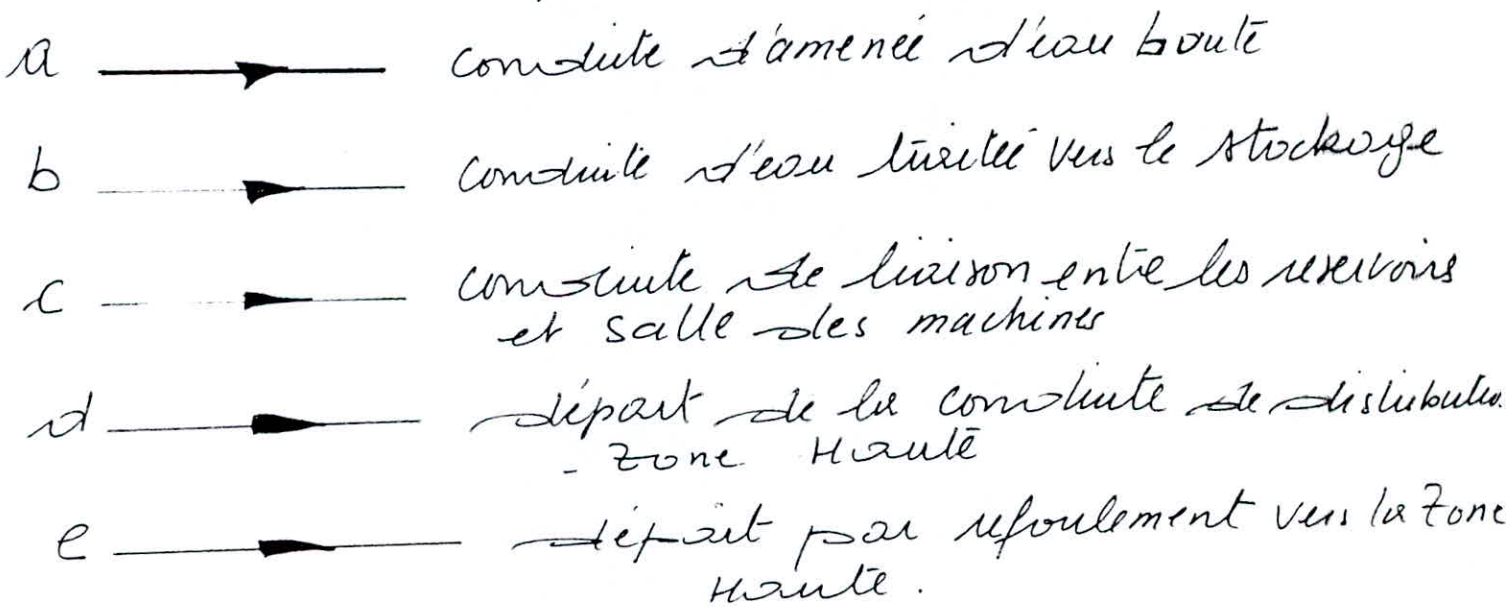 a conduite d'amenée d'eau boute
b conduite d'eau traitée vers le stockage
c conduite de liaison entre les reservoirs
et salle des machines
d départ de la conduite de distributio.
- Zone Haute
e départ par refoulement vers la Zone
Haute.